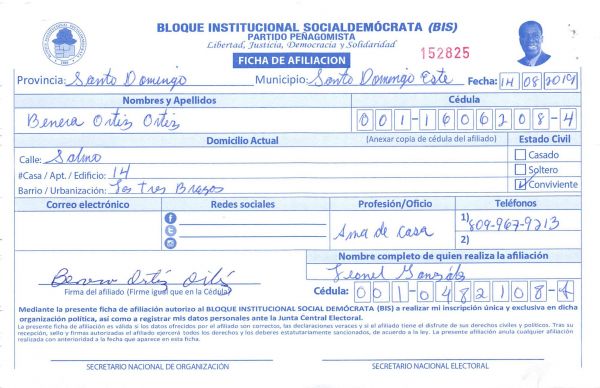 BLOQUE INSTITUCIONAL SOCIALDEMÓCRATA (BIS)
PARTIDO PEÑAGOMISTA
Libertad, Justicia, Democracia y Solidaridad
FICHA DE AFILIACION
152825
Provincia: Santo Domingo Municipio: Santo Domingo Este Fecha: 14 08 2019
Nombres y Apellidos Cédula
Benera Ortiz Ortiz 001-1606208-4
Domicilio Actual (Anexar copia de cédula del afiliado) Estado Civil
Calle: Salmo Casado
#Casa / Apt. / Edificio: 14 Soltero
Barrio / Urbanización: Los Tres Brazos Conviviente
Correo electrónico Redes sociales Profesión/Oficio Teléfonos
Ama de casa 1) 809-967-9213
2)
Nombre completo de quien realiza la afiliación
Leonel González
Firma del afiliado (Firme igual que en la Cédula) Cédula: 001-0482108-
Mediante la presente ficha de afiliación autorizo al BLOQUE INSTITUCIONAL SOCIAL DEMÓCRATA (BIS) a realizar mi inscripción única y exclusiva en dicha
organización política, así como a registrar mis datos personales ante la Junta Central Electoral.
La presente ficha de afiliación es válida si los datos ofrecidos por el afiliado son correctos, las declaraciones veraces y si el afiliado tiene el disfrute de sus derechos civiles y políticos. Tras su
recepción, sello y firmas autorizadas el afiliado ejercerá todos los derechos y los deberes estatutariamente sancionados, de acuerdo a la ley. La presente afiliación anula cualquier afiliación
realizada con anterioridad a la fecha que aparece en esta ficha.
SECRETARIO NACIONAL DE ORGANIZACIÓN SECRETARIO NACIONAL ELECTORAL